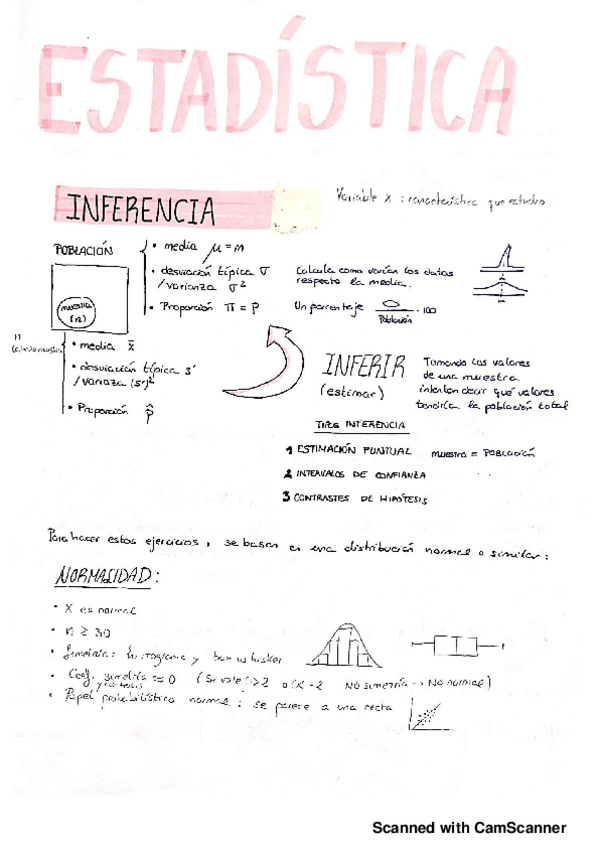 ESTADÍSTICA
INFERENCIA
Variable x : característica que estudio
POBLACIÓN
muestra
(n)
• media μ = m
• desviación típica σ
/varianza σ²
• Proporción π = p
Calcula como varían los datos
respecto la media.
Un porcentaje
Población
· 100
n
• media x̄
• desviación típica s'
/varianza (s')²
• Proporción p̂
INFERIR
(estimar)
Tomando los valores
de una muestra
intentan decir qué valores
tendría la población total
TIPOS INFERENCIA
1 ESTIMACIÓN PUNTUAL muestra = POBLACIÓN
2 INTERVALOS DE CONFIANZA
3 CONTRASTES DE HIPÓTESIS
Para hacer estos ejercicios, se basan en una distribución normal o similar:
NORMALIDAD:
• X es normal
• n ≥ 30
• Simetría: histograma y box whisker
• Coef. simetría ≈ 0 (Si vale >2 o <-2 No simetría → No normal)
y curtosis
• Papel probabilístico normal: se parece a una recta
Scanned with CamScanner